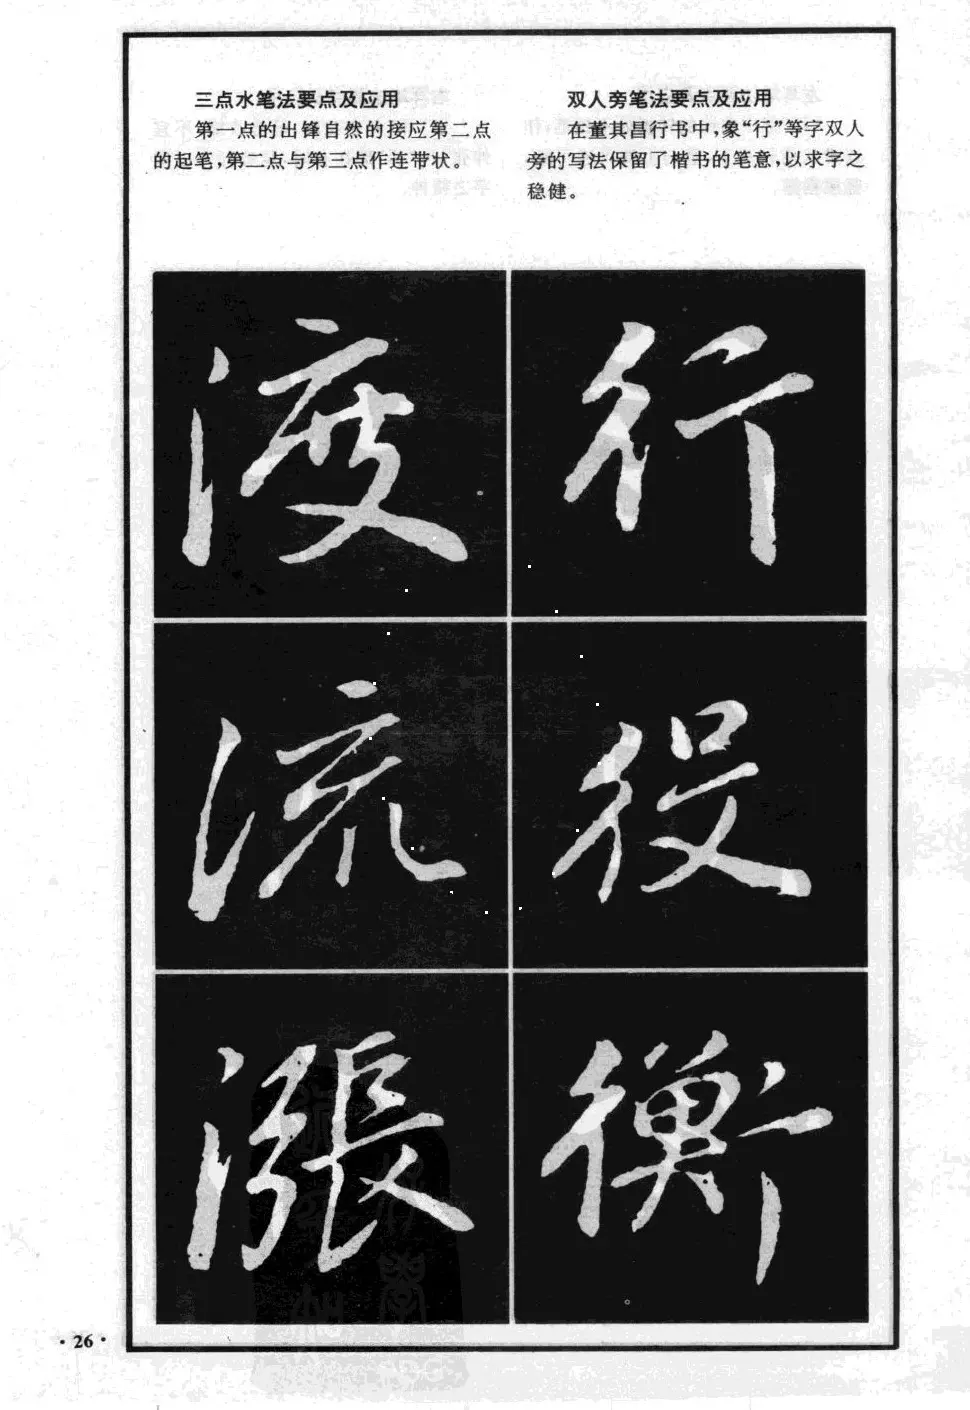 三点水笔法要点及应用
第一点的出锋自然的接应第二点
的起笔,第二点与第三点作连带状。
双人旁笔法要点及应用
在董其昌行书中,象“行”等字双人
旁的写法保留了楷书的笔意,以求字之
稳健。
渡
行
流
役
漲
衡
·26·